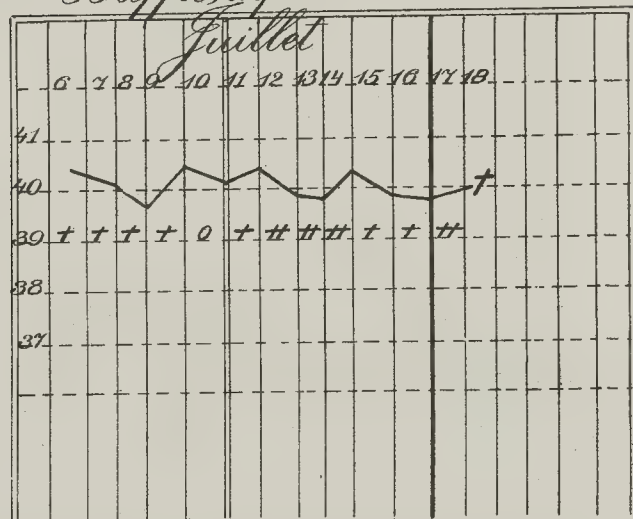 Juillet
6 7 8 9 10 11 12 13 14 15 16 17 18
41
40 †
39 + + + + 0 + ++ ++ ++ + + ++
38
37